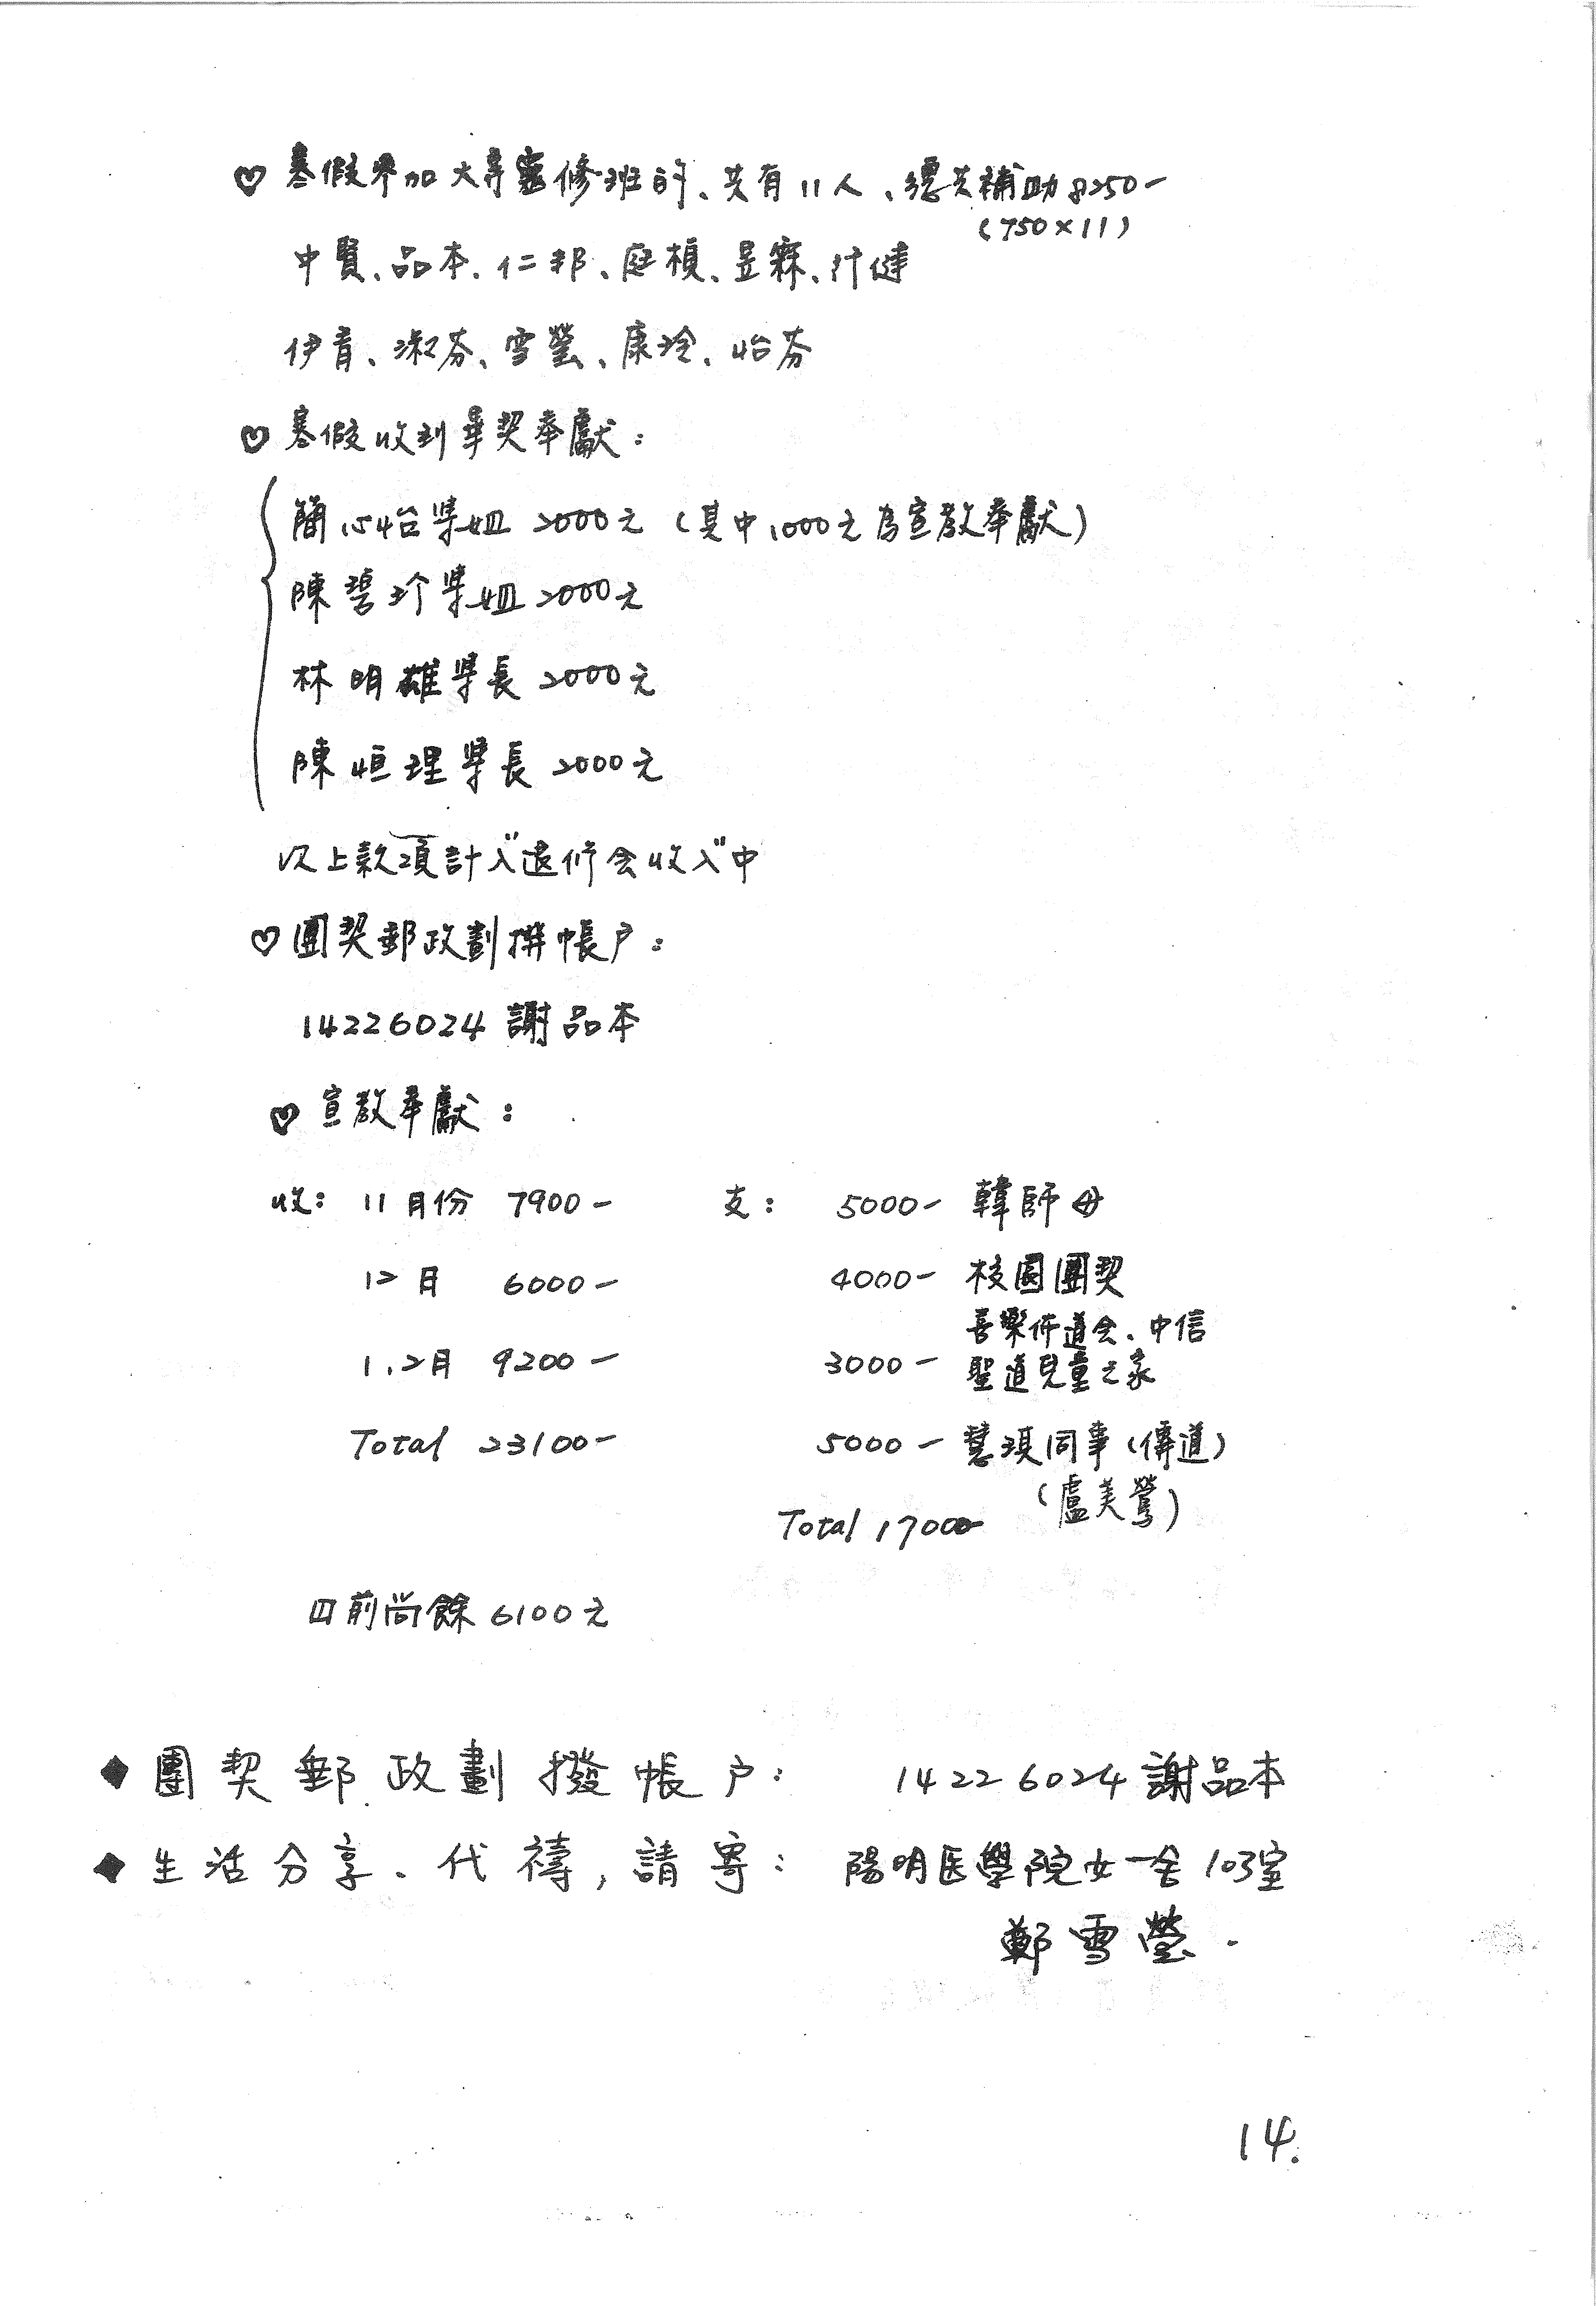 ♡ 寒假參加大專靈修班的、共有11人、總共補助8250-
(750×11)
中賢、品本、仁邦、庭楨、昱霖、行健
伊音、淑芬、雪瑩、康玲、怡芬
♡ 寒假收到畢契奉獻：
簡心怡學姐 2000元 (其中1000元為宣教奉獻)
陳碧珍學姐 2000元
林明雄學長 2000元
陳恒理學長 2000元
以上款項計入"退修会收入"中
♡ 團契郵政劃撥帳戶：
14226024 謝品本
♡ 宣教奉獻：
收： 11月份 7900- 支： 5000- 韓師母
12月 6000- 4000- 校園團契
喜樂佈道会、中信
1.2月 9200- 3000- 聖道兒童之家
Total 23100- 5000- 慧琪同事(傳道)
(盧美鶯)
Total 17000-
目前尚餘 6100元
◆ 團契郵政劃撥帳戶： 14226024 謝品本
◆ 生活分享、代禱，請寄： 陽明医學院女一舍103室
鄭雪瑩.
14.